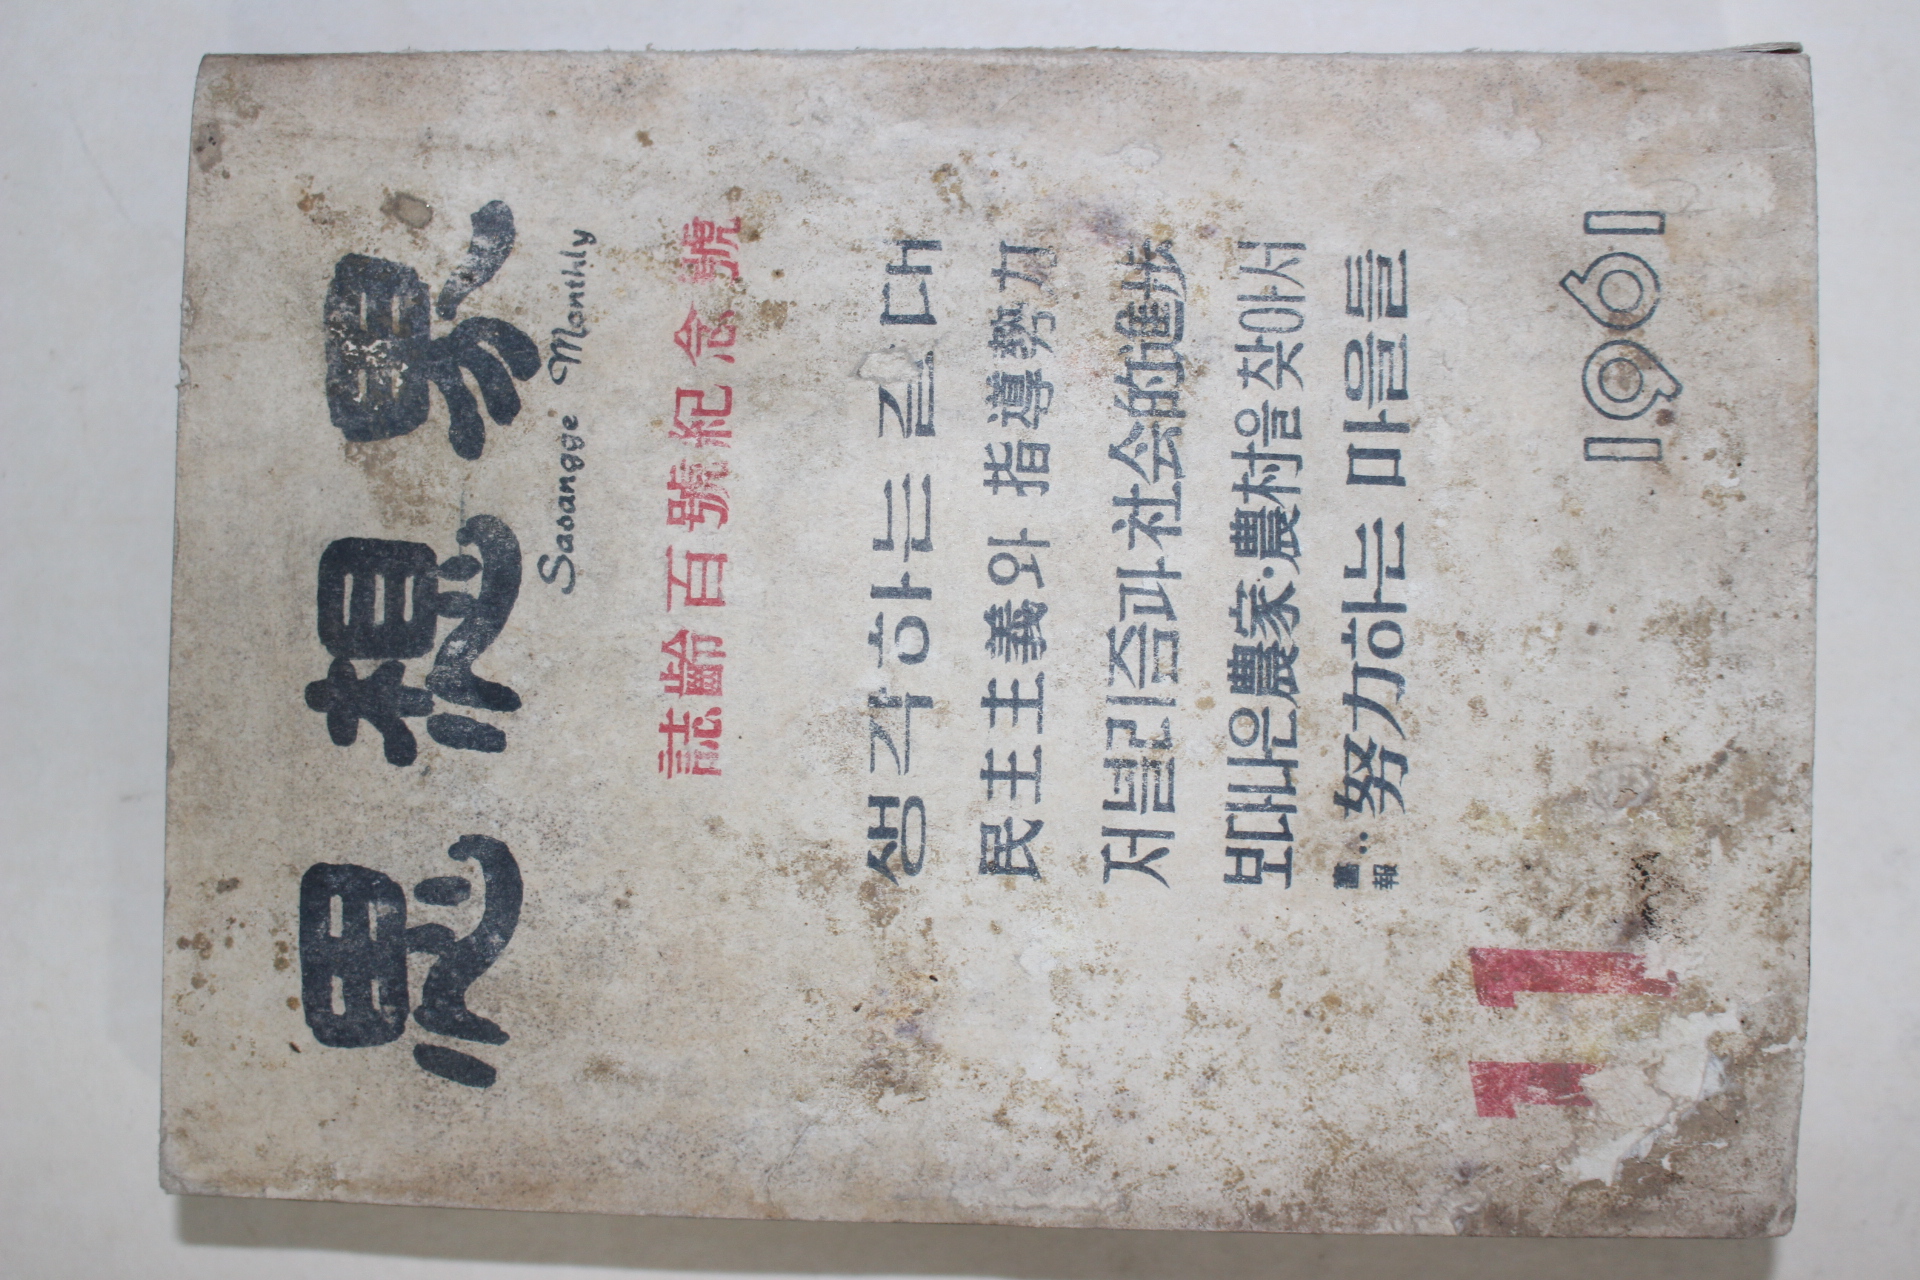 思想界
Sasangge Monthly
誌齡百號紀念號
생각하는 갈대
民主主義와 指導勢力
저널리즘과 社会的進步
보다나은農家·農村을 찾아서
畵報‥努力하는 마을들
11
1961